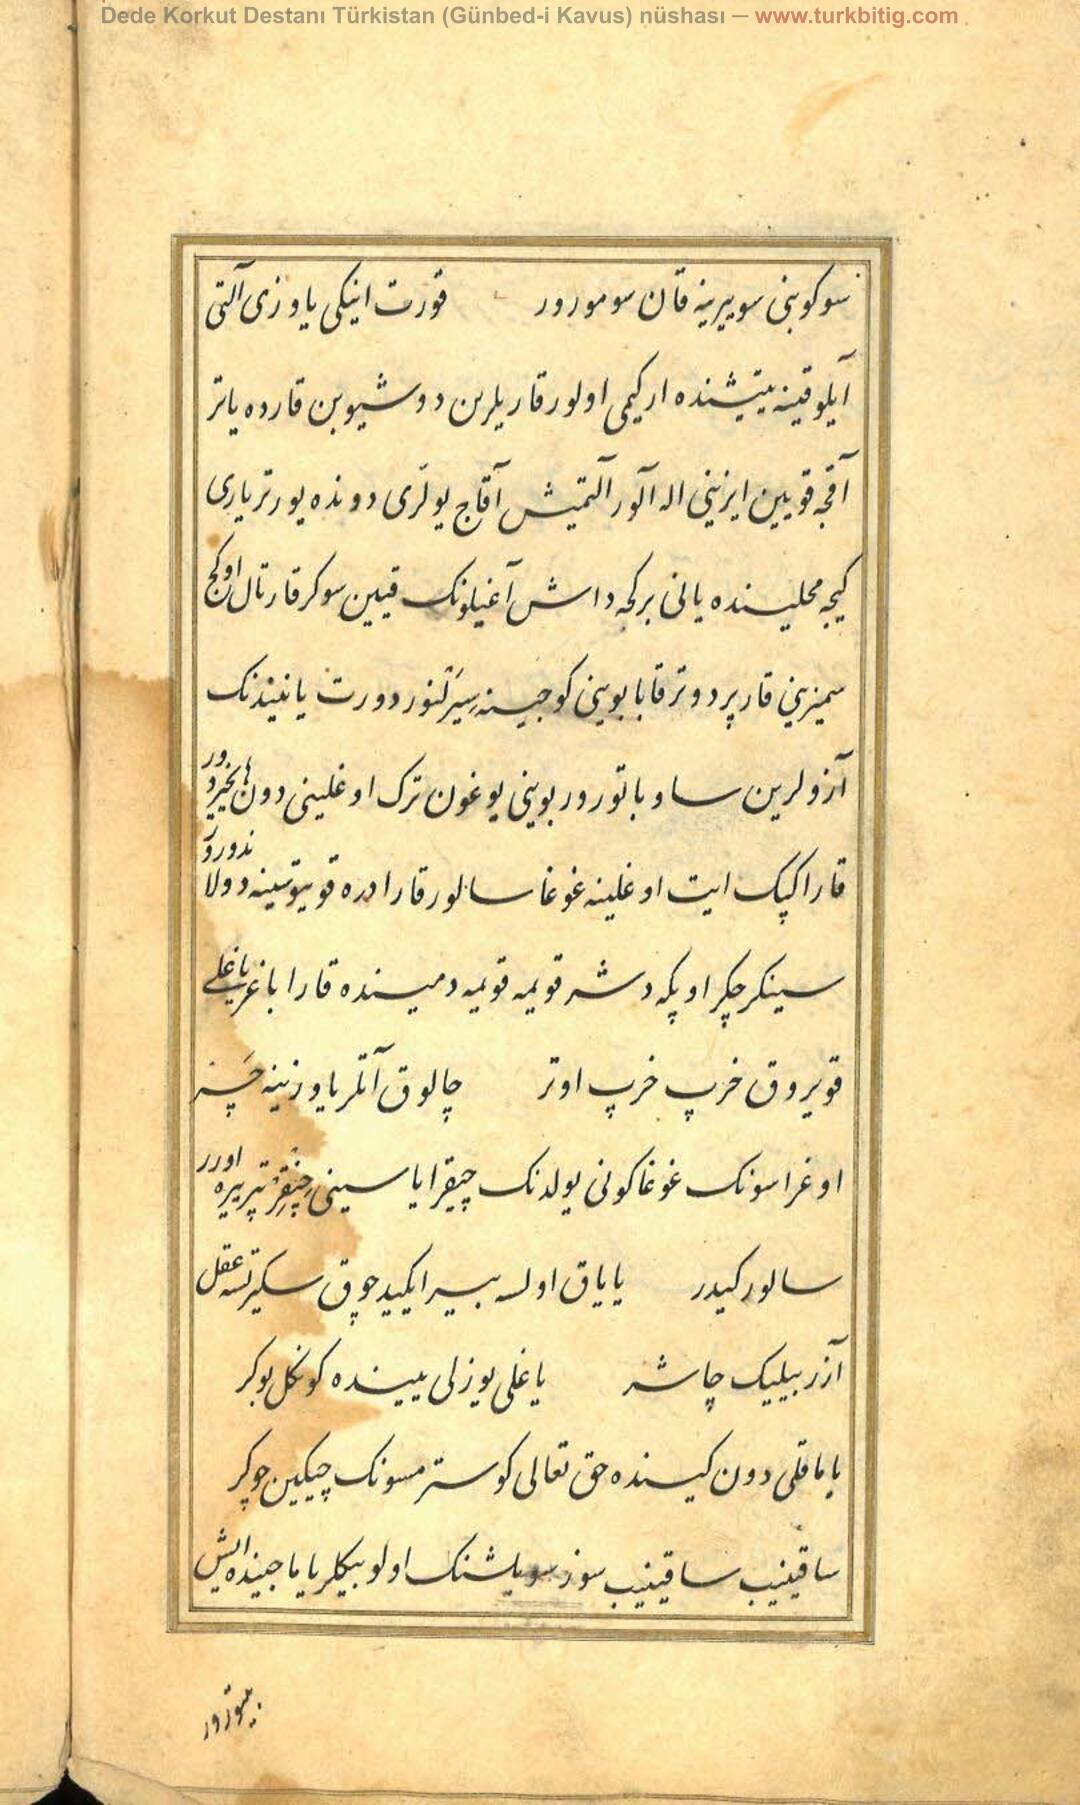 Dede Korkut Destanı Türkistan (Günbed-i Kavus) nüshası — www.turkbitig.com
سوکوبنی سوپیرینه قان سومورور قورت اینکی یاوزی آلتی
آیلوقینه یتیشنده ارکیمی اولور قاریلرین دوشیوبن قارده یاتر
آقجه قویین ایزینی اله آلور آلتمیش آقاج یولری دونده یورتر یاری
کیجه محلینده یانی برکجه داش آغیلونک قیین سوکر قارتال اوکج
سمیزینی قارپر دوتر قابا بوینی کوجینه سیرتنور دورت یانیندنک
آزولرین ساو باتورور بوینی یوغون ترک اوغلینی دون
قارا کپک ایت اوغلینه غوغا سالور قارا دره قویوسینه دولا
سینکر جکر اوپکه دشر قویمه قویمه دمینده قارا باغر یاغلی
قویروق خرپ خرپ اوتر چالوق آتلر یاوزینه چپر
اوغراسونک غوغا کونی یولدنک چیقر ایاسینی اورر
سالور کیدر یایاق اولسه بیر ایکید جوق سکیرتسه عقل
آزر بیلیک چاشر یاغلی یوزلی یینده کونکل بوکر
یاماقلی دون کیسنده حق تعالی کوسترمسونک چیکین چوکر
ساقینیب ساقینیب سوز سویلشنک اولو بیکلر یایاجینده ایش